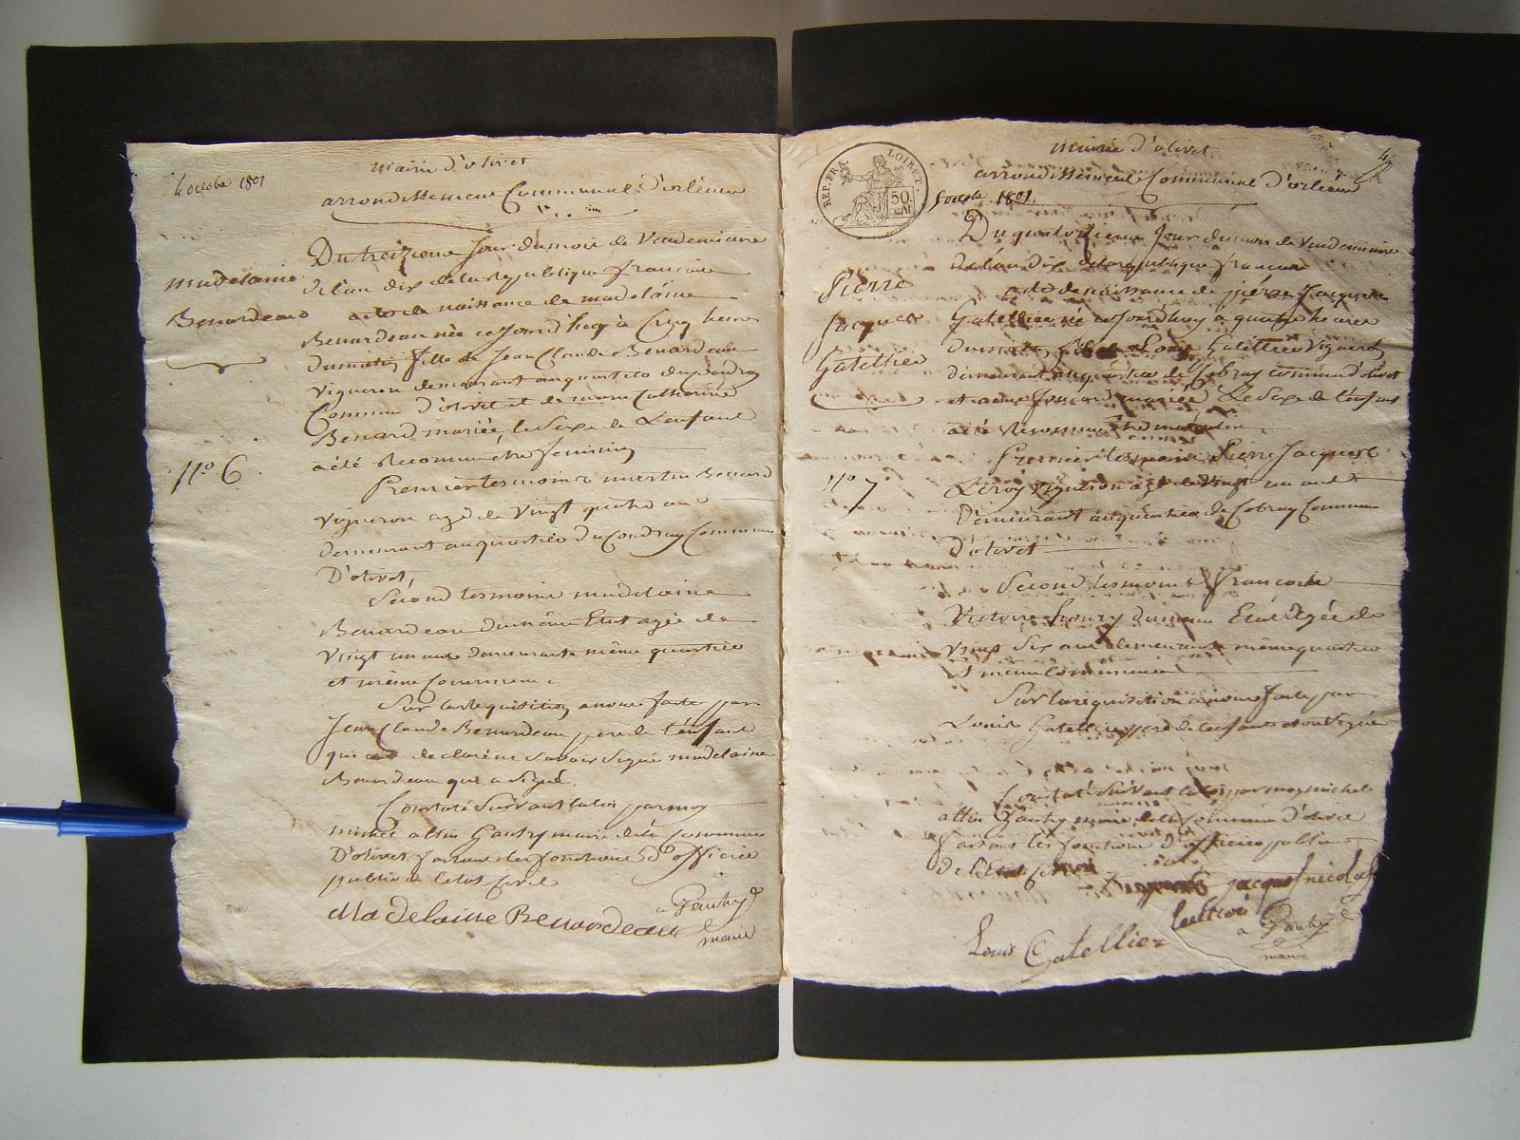 4 octobre 1801
Mairie d'olivet
arrondissement Communal d'orléans
Du treizieme Jour du mois de Vendemiaire
de l'an dix de la republique francaise
madelaine
Benardeau
acte de naissance de madelaine
Benardeau née ce Jourd'huy à Cinq heures
du matin fille de Jean Claude Benardeau
Vigneron demeurant au quartier du
Commune d'olivet et de marie Catherine
Benard mariée, le Sexe de L'enfant
a été Reconnu etre feminin
N° 6
Premier tesmoin martin Benard
Vigneron agé de Vingt quatre ans
demeurant au quartier du Condray Commune
D'olivet,
Second tesmoin madelaine
Benardeau du même Etat agée de
Vingt un ans demeurante même quartier
et même Commune
Sur la requisition a nous faite par
Jean Claude Benardeau pere de l'enfant
qui a declaré ne Savoir Signé madelaine
Benardeau qui a Signé.
Constaté Suivant la loi par moy
altin Gautry maire de la Commune
D'olivet faisant les fonctions d'officier
public de l'etat Civil
Madelaine Benardeau
a Gautry
maire
REP. FRA. LOIRET.
50
Mairie d'olivet
arrondissement Communal d'orléans
1801
Du quatorzieme Jour du mois de Vendemiaire
de l'an dix de la republique francaise
Pierre
Jacques
Gatellier
acte de naissance de pierre Jacques
Gatellier né ce Jourd'huy a quatre heures
du matin fils de Louis Gatellier Vigneron
demeurant au quartier de Commune d'olivet
et de mariée, Le Sexe de l'enfant
a été Reconnu etre masculin
N° 7
Premier tesmoin Pierre Jacques
Leroy Vigneron agé de Vingt un ans
Demeurant au quartier de Commune
D'olivet
Second tesmoin francoise
Victoire du même Etat Agée de
Vingt Six ans demeurant même quartier
et même Commune
Sur la requisition a nous faite par
Louis Gatellier pere de l'enfant et ont Signé
Constaté Suivant la loi par moy michel
altin Gautry maire de la Commune d'olivet
faisant les fonctions d'officier public
de l'etat Civil
jacques nicolas
Louis Gatellier
a Gautry
maire